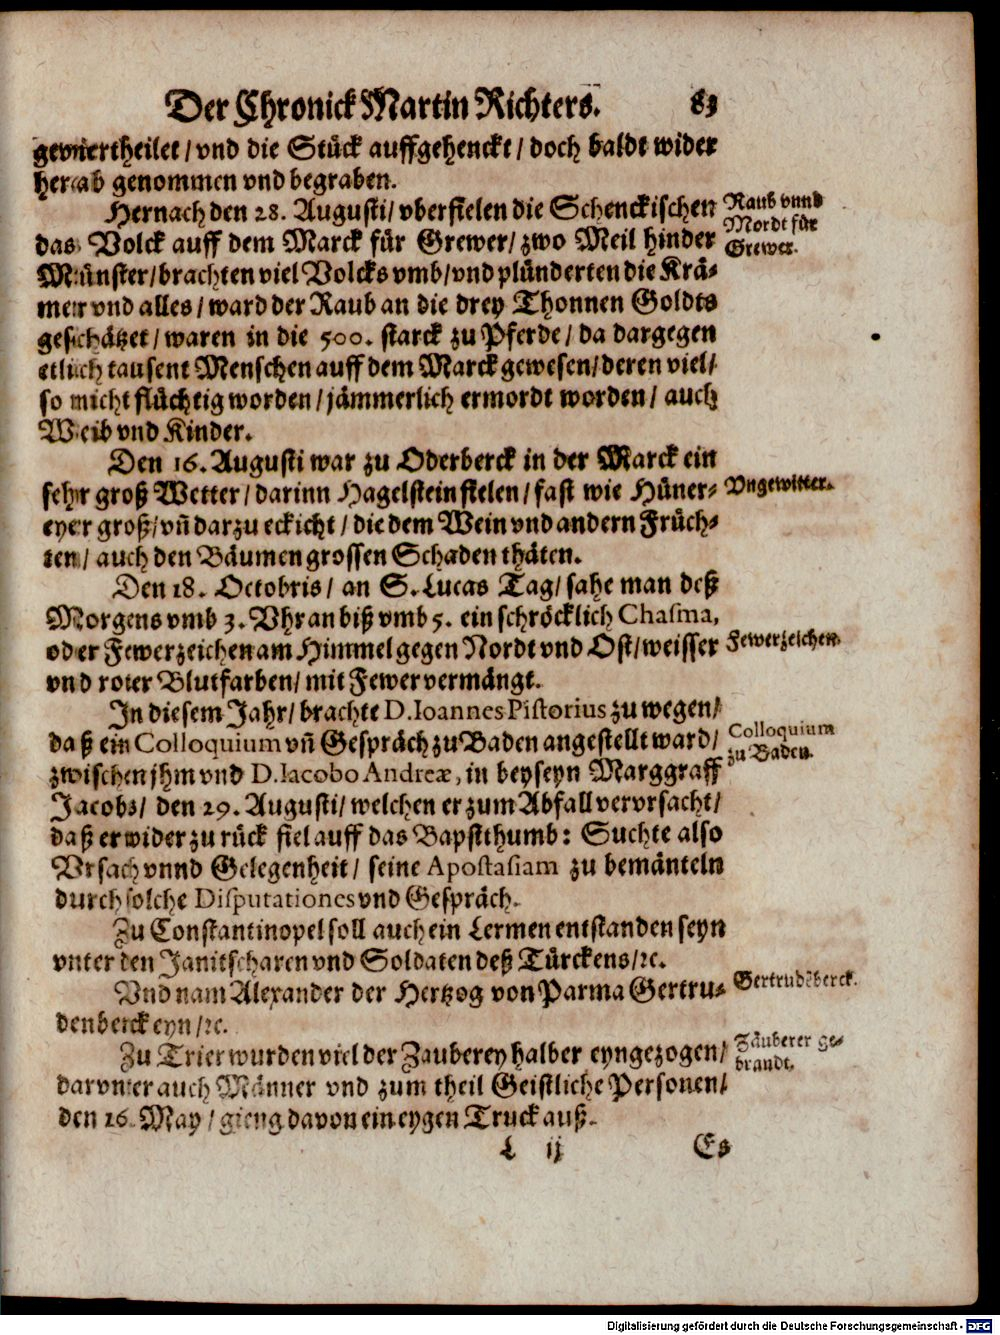 Der Chronick Martin Richters. 83
geviertheilet / vnd die Stück auffgehenckt / doch baldt wider
herab genommen vnd begraben.
Hernach den 28. Augusti / vberfielen die Schenckischen
Raub vnnd
Mordt für
Grewer.
das Volck auff dem Marck für Grewer / zwo Meil hinder
Münster / brachten viel Volcks vmb / vnd plünderten die Krä-
mer vnd alles / ward der Raub an die drey Thonnen Goldts
geschätzet / waren in die 500. starck zu Pferde / da dargegen
etlich tausent Menschen auff dem Marck gewesen / deren viel /
so nicht flüchtig worden / jämmerlich ermordt worden / auch
Weib vnd Kinder.
Den 16. Augusti war zu Oderberck in der Marck ein
sehr groß Wetter / darinn Hagelstein fielen / fast wie Hüner-
Vngewitter.
eyer groß / vñ darzu eckicht / die dem Wein vnd andern Früch-
ten / auch den Bäumen grossen Schaden thäten.
Den 18. Octobris / an S. Lucas Tag / sahe man deß
Morgens vmb 3. Vhr an biß vmb 5. ein schröcklich Chasma,
oder Fewerzeichen am Himmel gegen Nordt vnd Ost / weisser
Fewerzeichen.
vnd roter Blutfarben / mit Fewer vermängt.
In diesem Jahr / brachte D. Ioannes Pistorius zu wegen /
daß ein Colloquium vñ Gespräch zu Baden angestellt ward /
Colloquium
zu Baden.
zwischen jhm vnd D. Iacobo Andreæ, in beyseyn Marggraff
Jacobs / den 29. Augusti / welchen er zum Abfall vervrsacht /
daß er wider zu rück fiel auff das Bapstthumb: Suchte also
Vrsach vnnd Gelegenheit / seine Apostasiam zu bemänteln
durch solche Disputationes vnd Gespräch.
Zu Constantinopel soll auch ein Lermen entstanden seyn
vnter den Janitscharen vnd Soldaten deß Türckens / ꝛc.
Vnd nam Alexander der Hertzog von Parma Gertru-
Gertrudeberck.
denberck eyn / ꝛc.
Zu Trier wurden viel der Zauberey halber eyngezogen /
Zäuberer ge-
brandt.
darvnter auch Männer vnd zum theil Geistliche Personen /
den 16. May / gieng davon ein eygen Truck auß.
L ij Es
Digitalisierung gefördert durch die Deutsche Forschungsgemeinschaft - DFG